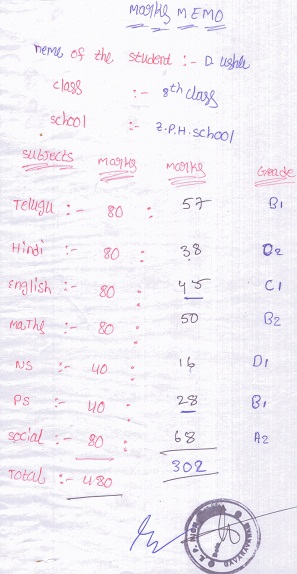 marks MEMO
neme of the student :- D. usha
class :- 8th class
school :- Z.P.H. school
subjects marks marks Grade
Telugu :- 80 : 57 B1
Hindi :- 80 : 38 C2
English :- 80 : 45 C1
Maths :- 80 : 50 B2
NS :- 40 : 16 D1
PS :- 40 : 28 B1
social :- 80 : 68 A2
Total :- 480 302